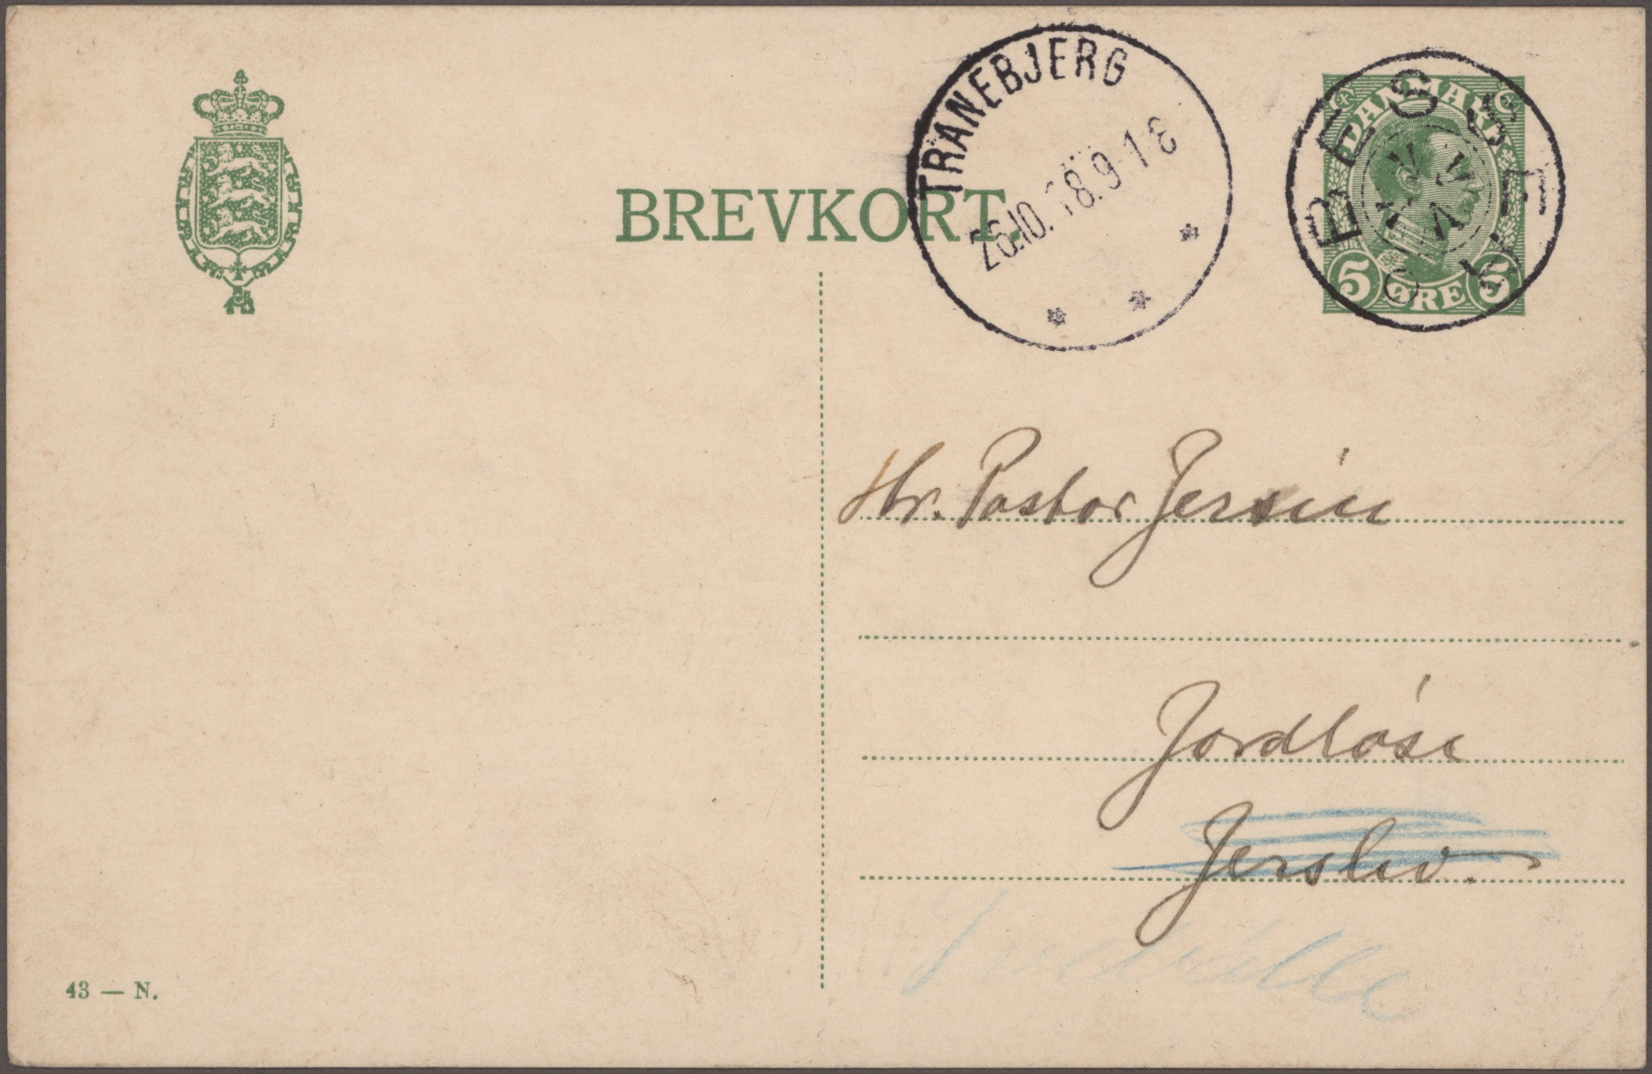 TRANEBJERG
26.10. 18. 9-1 E
BESSER
DANMARK
5 ØRE 5
BREVKORT.
Hr. Pastor Jersin
Jordløse
Jerslev.
43 — N.